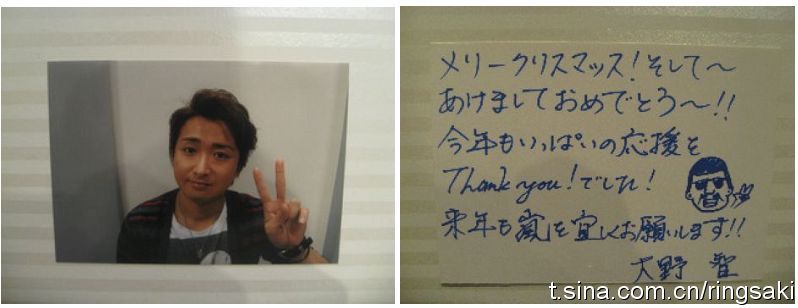 メリークリスマッス！そして～
あけましておめでとう～!!
今年もいっぱいの応援を
Thank you！でした！
来年も嵐を宜しくお願いします!!
大野 智
t.sina.com.cn/ringsaki